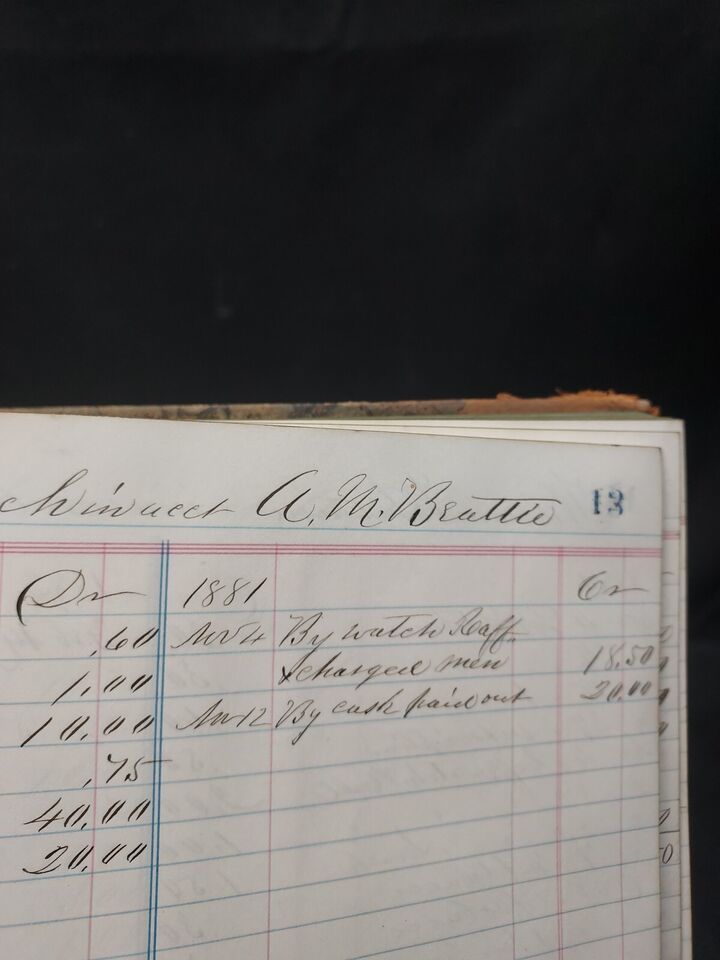 in acct A. M. Beattie 13
Dr 1881 Cr
.60 Nov 4 By watch Raff.
1.00 & charged men 18.50
10.00 Nov 12 By cash paid out 20.00
.75
40.00
20.00